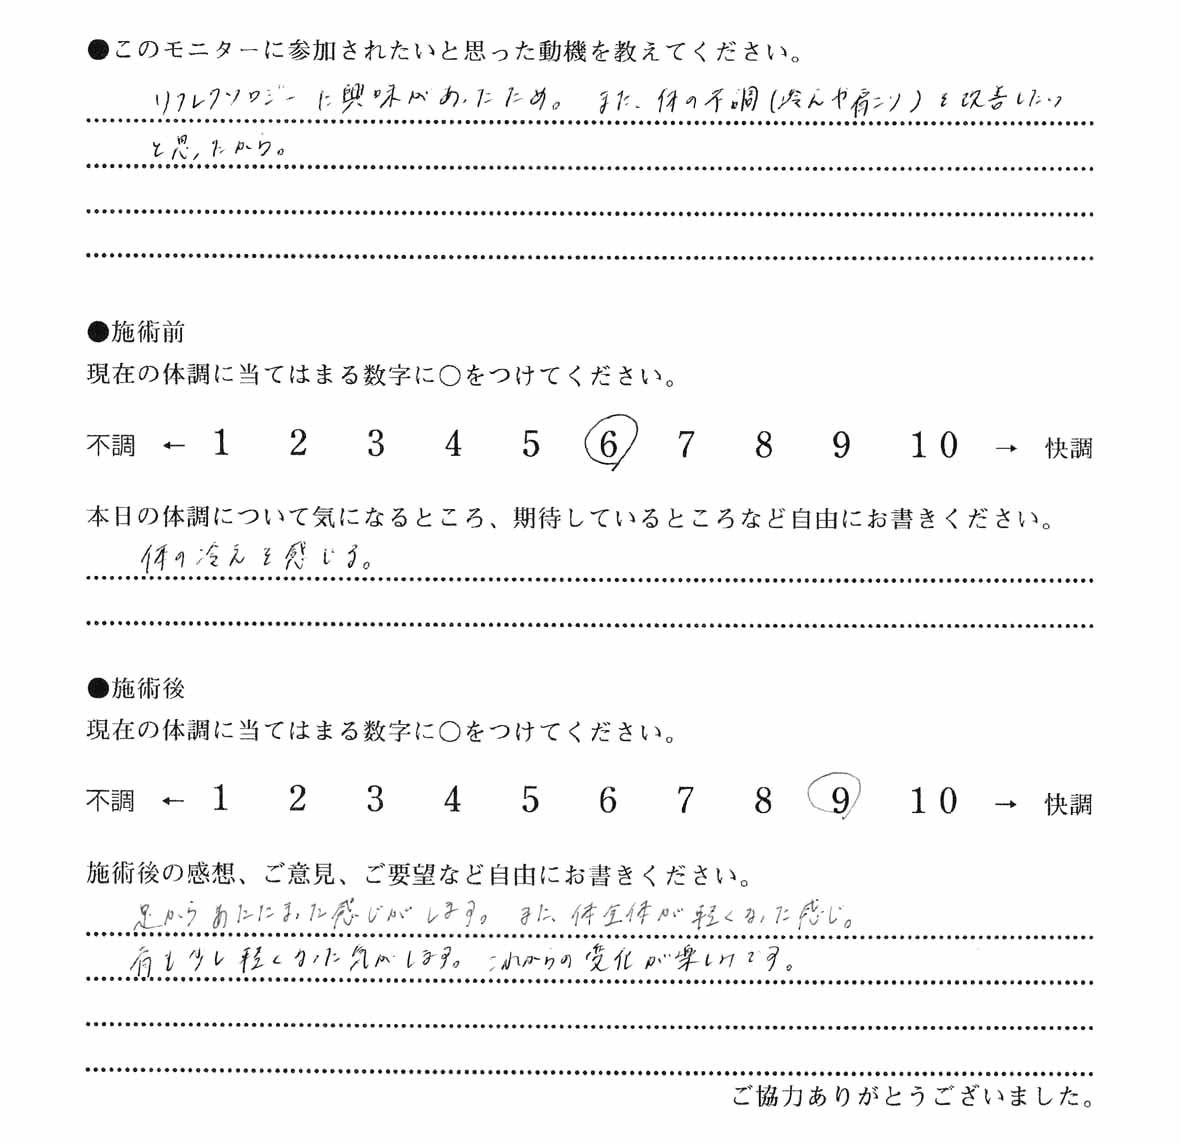 ●このモニターに参加されたいと思った動機を教えてください。
リフレクソロジーに興味があったため。また、体の不調(冷えや肩こり)を改善したい
と思ったから。
●施術前
現在の体調に当てはまる数字に○をつけてください。
不調 ← 1 2 3 4 5 6 7 8 9 10 → 快調
本日の体調について気になるところ、期待しているところなど自由にお書きください。
体の冷えを感じる。
●施術後
現在の体調に当てはまる数字に○をつけてください。
不調 ← 1 2 3 4 5 6 7 8 9 10 → 快調
施術後の感想、ご意見、ご要望など自由にお書きください。
足からあたたまった感じがします。また、体全体が軽くなった感じ。
肩も少し軽くなった気がします。これからの変化が楽しみです。
ご協力ありがとうございました。